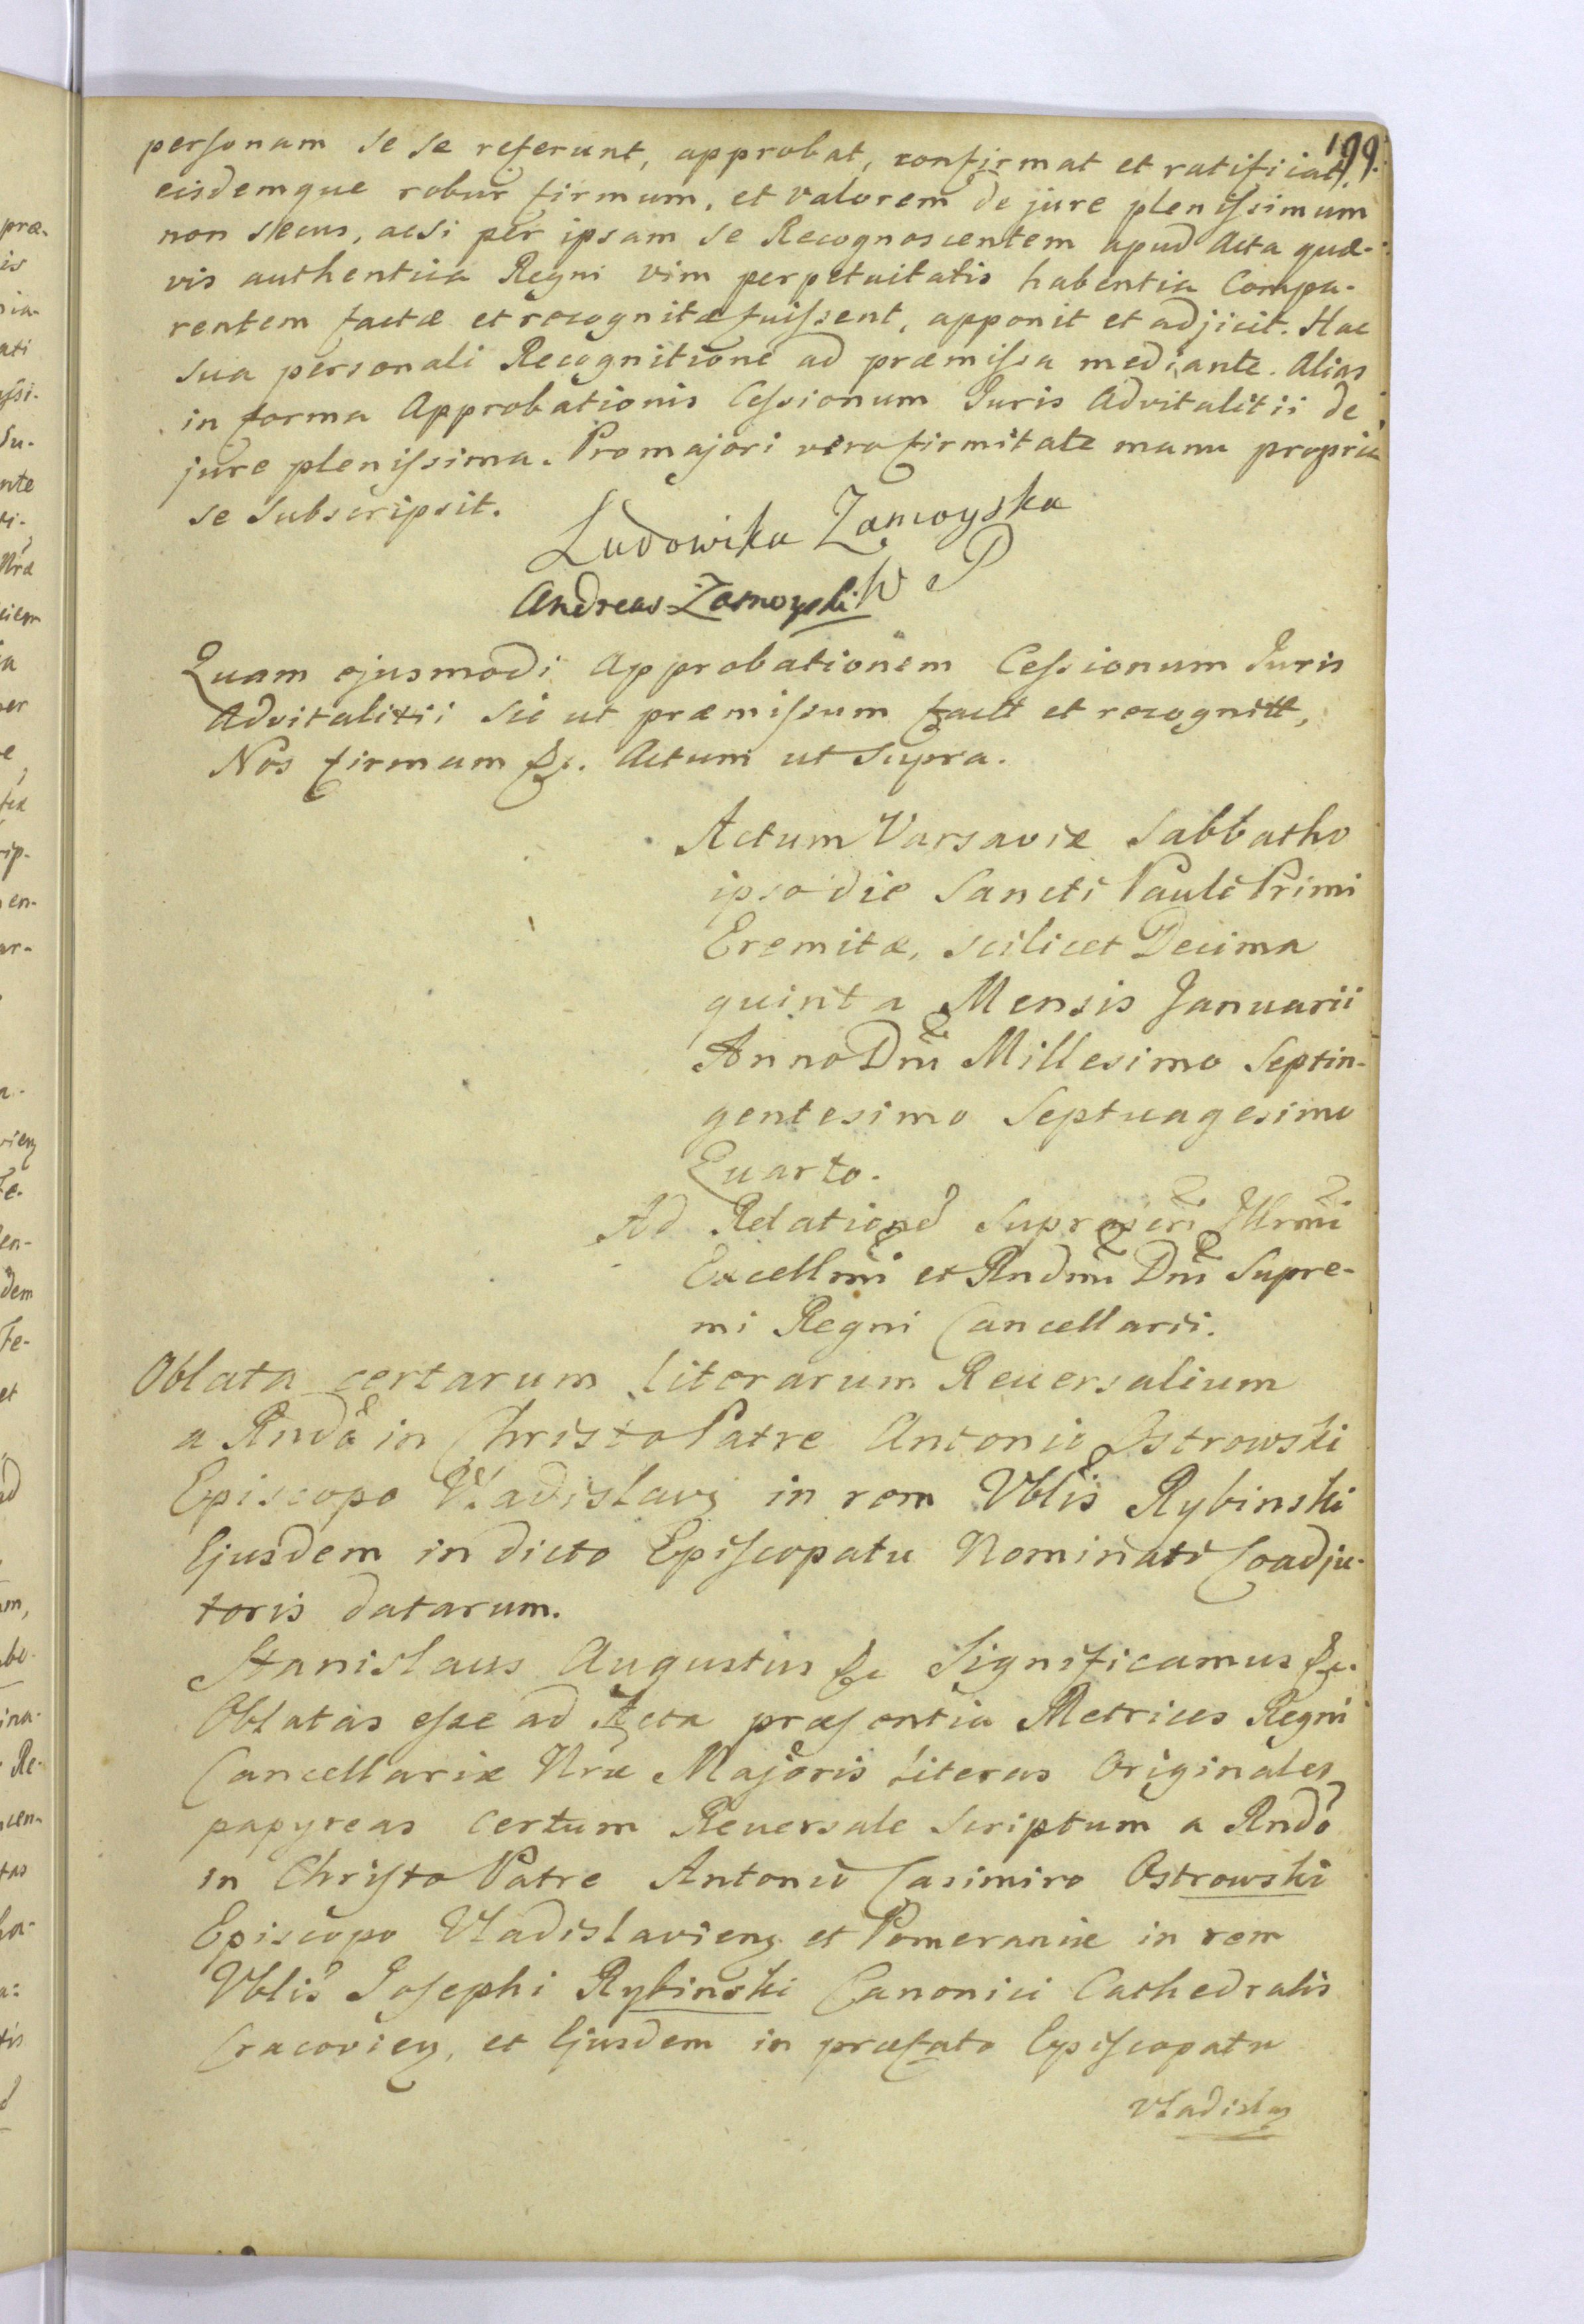 199.
personam se se referunt, approbat, confirmat et ratificat,
eisdemque robur firmum, et valorem de jure plenissimum
non secus, acsi per ipsam se Recognoscentem apud Acta quæ-
vis authentica Regni vim perpetuitatis habentia Compa-
rentem factæ et recognitæ fuissent, apponit et adjicit. Hac
sua personali Recognitione ad præmissa mediante. Alias
in forma Approbationis Cessionum Juris Advitalitii de
jure plenissima. Pro majori vero firmitate manu propria
se subscripsit.
Ludowika Zamoyska
Andreas Zamoyski W P
Quam ejusmodi Approbationem Cessionum Juris
Advitalitii sic ut præmissum factt et recognitt,
Nos firmam &c. Actum ut supra.
Actum Varsaviæ Sabbatho
ipso die Sancti Pauli Primi
Eremitæ, scilicet Decima
quinta Mensis Januarii
Anno Dni Millesimo Septin-
gentesimo Septuagesimo
Quarto.
Ad Relationẽ suprascri Illrmi
Excellmi et Rndmi Dni Supre-
mi Regni Cancellarii.
Oblata certarum literarum Reversalium
a Rndo in Christo Patre Antonio Ostrowski
Episcopo Vladislavẽ in rem Vblis Rybinski
Ejusdem in dicto Episcopatu Nominati Coadju-
toris datarum.
Stanislaus Augustus &c Significamus &c.
Oblatas esse ad Acta præsentia Metrices Regni
Cancellariæ Nræ Majoris literas Originales
papyreas certum Reversale scriptum a Rndo
in Christo Patre Antonio Casimiro Ostrowski
Episcopo Vladislavienẽ et Pomeraniæ in rem
Vblis Josephi Rybinski Canonici Cathedralis
Cracovienẽ, et Ejusdem in præfato Episcopatu
Vladislaẽ